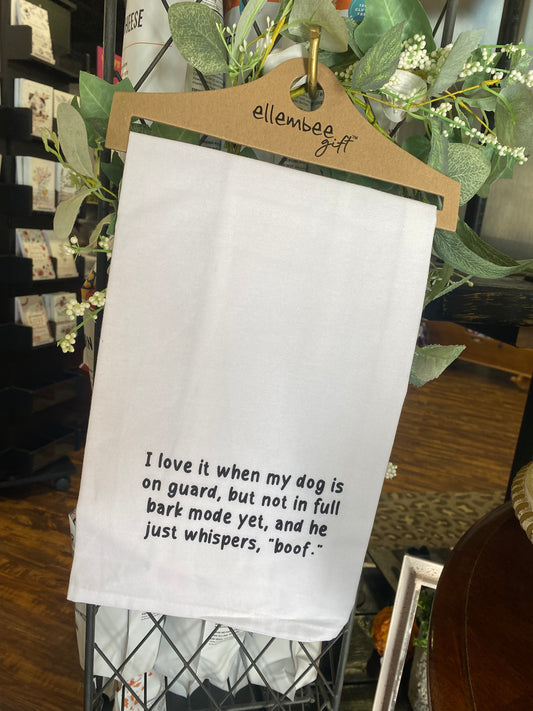 EESE
ellembee
gift™
I love it when my dog is
on guard, but not in full
bark mode yet, and he
just whispers, "boof."